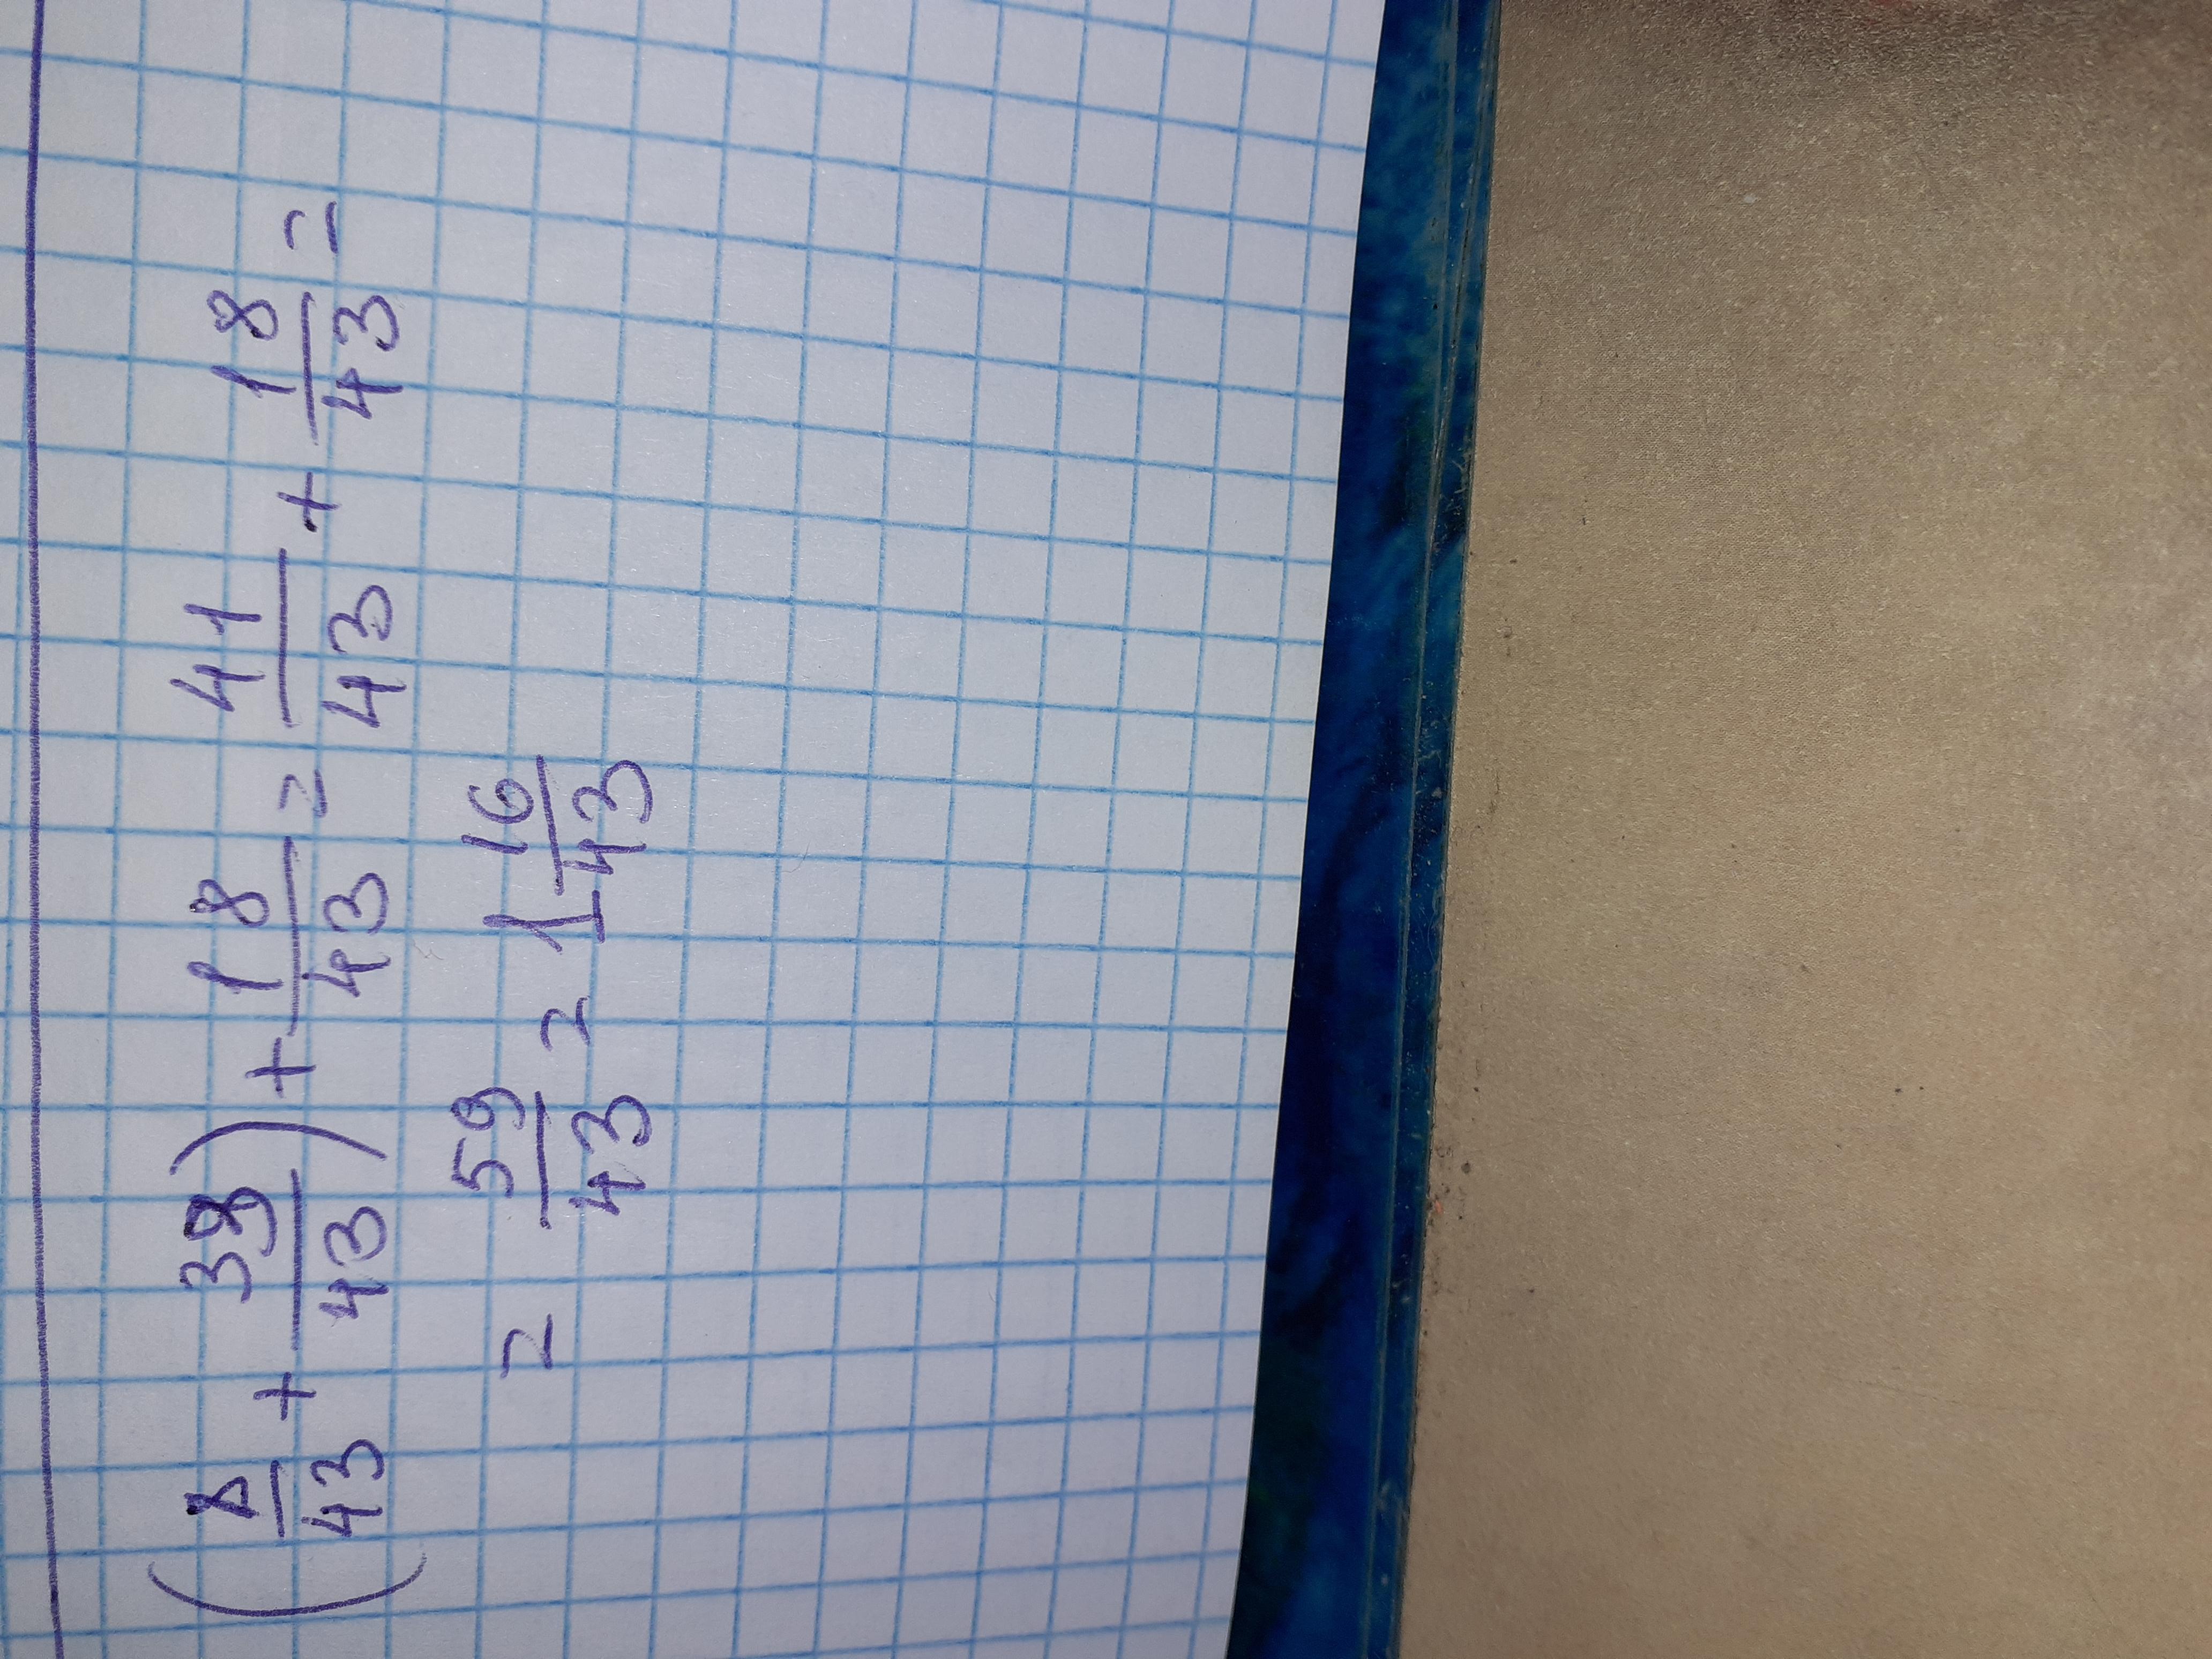 (8/43 + 39/43) + 18/43 = 41/43 + 18/43 =
= 59/43 = 1 16/43